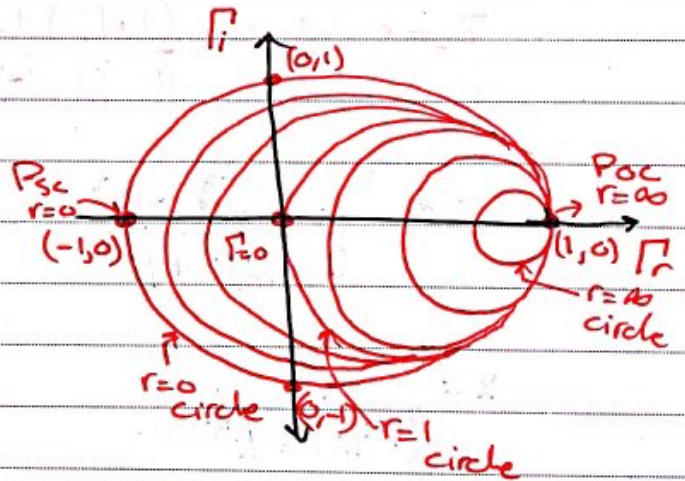 Γi
(0,1)
PSC
r=0
(-1,0)
Γ=0
POC
r=∞
(1,0)
Γr
r=∞
circle
r=0
circle
(0,-1)
r=1
circle